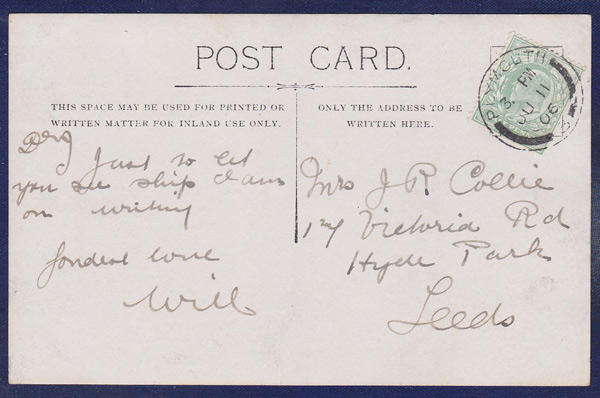 POST CARD.
THIS SPACE MAY BE USED FOR PRINTED OR
WRITTEN MATTER FOR INLAND USE ONLY.
ONLY THE ADDRESS TO BE
WRITTEN HERE.
PLYMOUTH
3 PM
JU 11
06
Just to let
you see ship I am
on writing
fondest love
Will
Mrs J R Collie
Victoria Rd
Hyde Park
Leeds